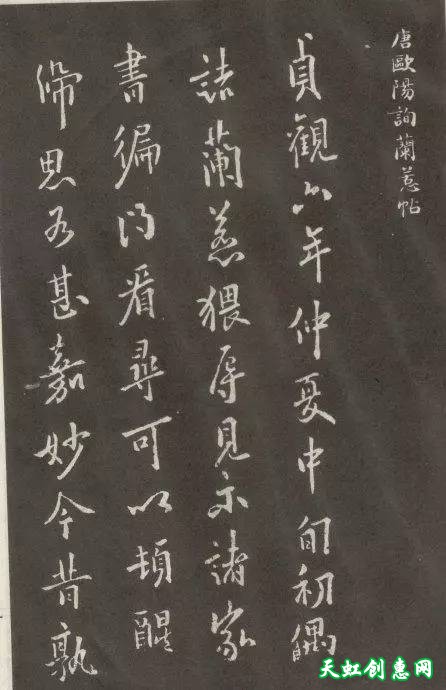 唐歐陽詢蘭惹帖
貞觀六年仲夏中旬初偶
誌蘭惹猥辱見示諸家
書徧得看尋可以頓醒
歸思为甚嘉妙今昔孰
天虹创惠网